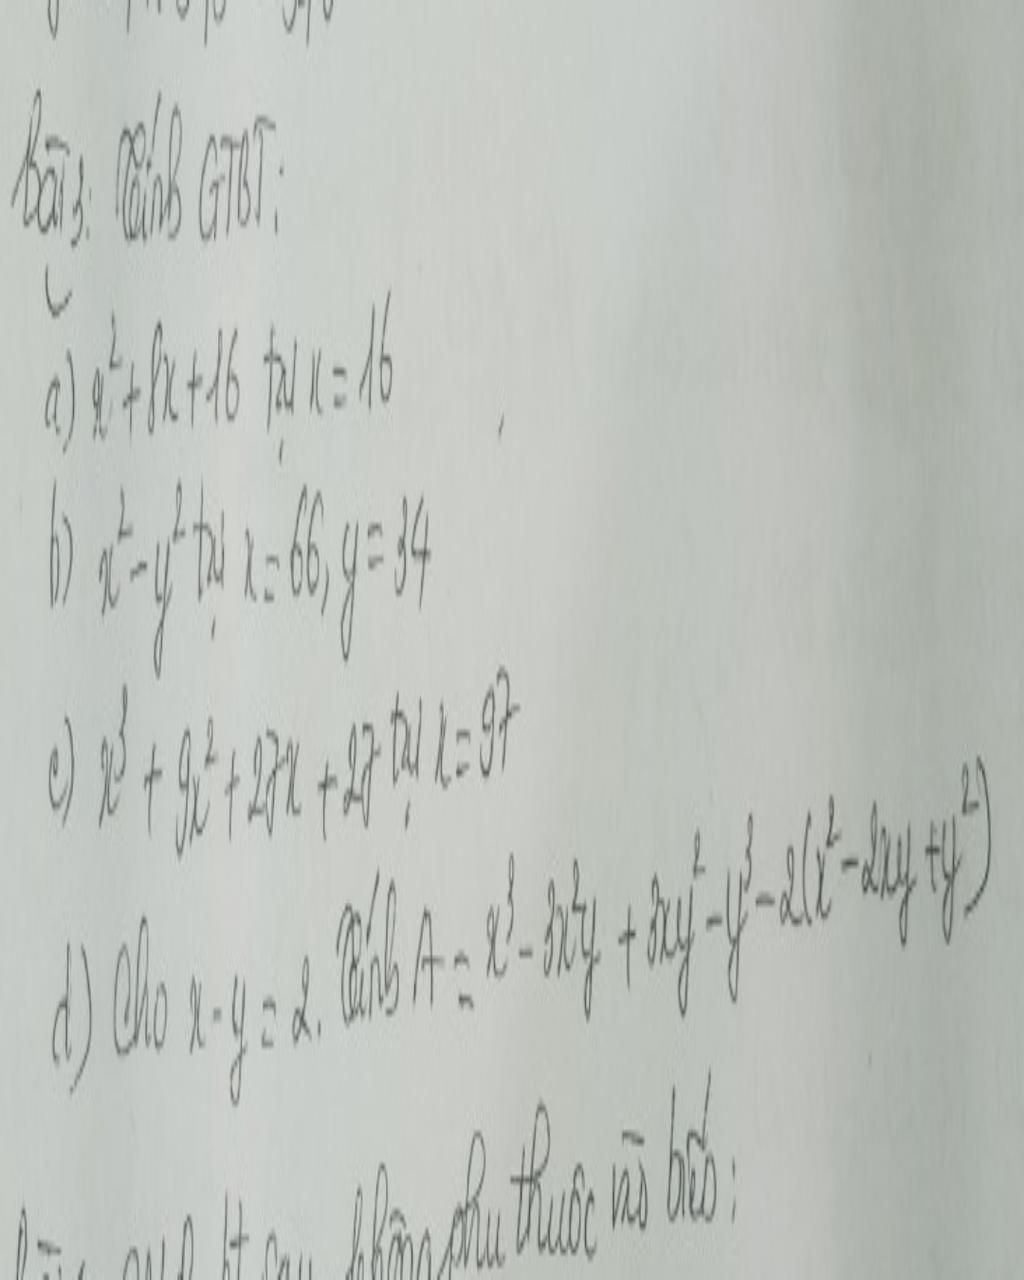 Bài 3: Tính GTBT:
a) x² + 8x + 16 tại x = 16
b) x² - y² tại x = 66, y = 34
c) x³ + 9x² + 27x + 27 tại x = 97
d) Cho x - y = 2. Tính A = x³ - 3x²y + 3xy² - y³ - 2(x² - 2xy + y²)
sau không phụ thuộc vào biến: